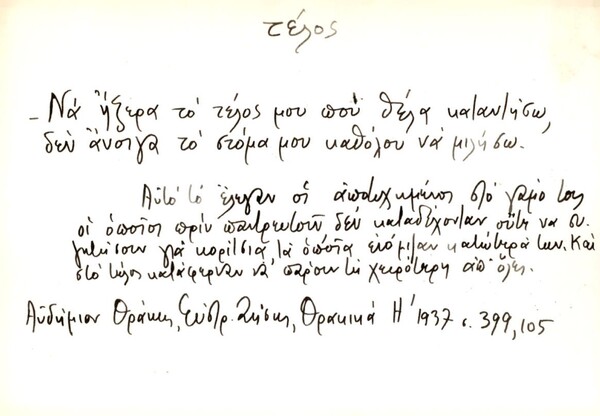 τέλος
- Νά ἤξερα τό τέλος μου πού θέλα καταντήσω,
δέν ἄνοιγα τό στόμα μου καθόλου νά μιλήσω.
Αὐτό τό ἔλεγαν οἱ ἀποτυχημένοι στό γάμο τους
οἱ ὁποῖοι πρίν παντρευτοῦν δέν καταδέχονταν οὔτε να συ
ζητήσουν γιά κορίτσια, τά ὁποῖα ἐνόμιζαν κατώτερά των. Καί
στό τέλος κατάφερναν νά πάρουν τή χειρότερη ἀπ' ὅλες.
Αὐδήμιον Θράκης, Εὐστρ. Ζήσης, Θρακικά Η' 1937 σ. 399, 105